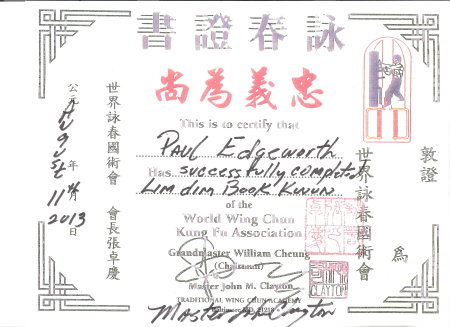 書證春詠
尚為義忠
This is to certify that
Paul Edgeworth
Has successfully completed
Lim dim Book Kwun
of the
World Wing Chun
Kung Fu Association
Grandmaster William Cheung
(Chairman)
Master John M. Clayton
TRADITIONAL WING CHUN ACADEMY
21218
Master John Clayton
敦證
為
世界詠春國術會
世界詠春國術會 會長張卓慶
公元 August 年 11 月 2013 日
CLAYTON